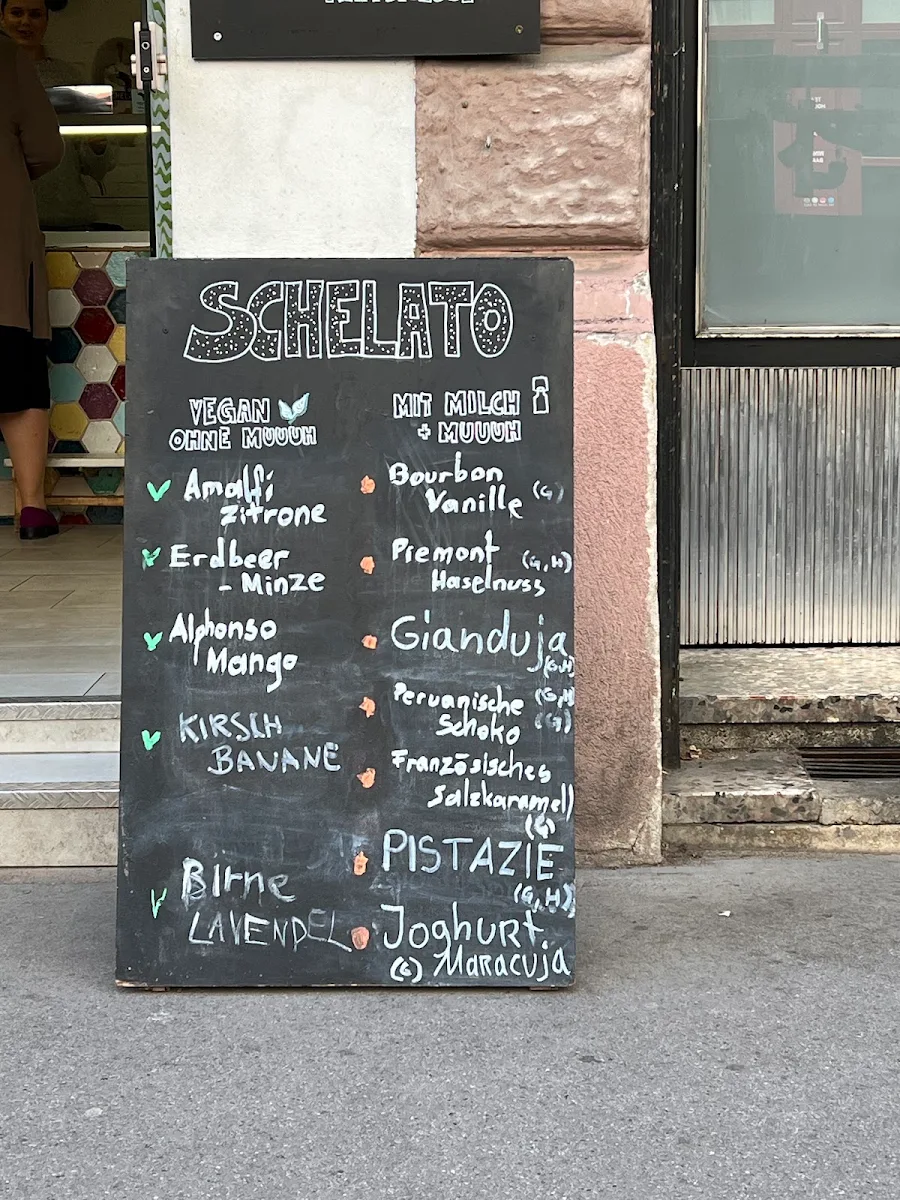 SCHELATO
VEGAN
OHNE MUUUH
Amalfi
Zitrone
Erdbeer
- Minze
Alphonso
Mango
KIRSCH
BANANE
Birne
LAVENDEL
MIT MILCH
+ MUUUH
Bourbon
Vanille (G)
Piemont (G, H)
Haselnuss
Gianduja
(G,H)
Peruanische (G,H)
Schoko (G)
Französisches
Salzkaramel)
(G)
PISTAZIE
(G,H)
Joghurt
(G) Maracuja